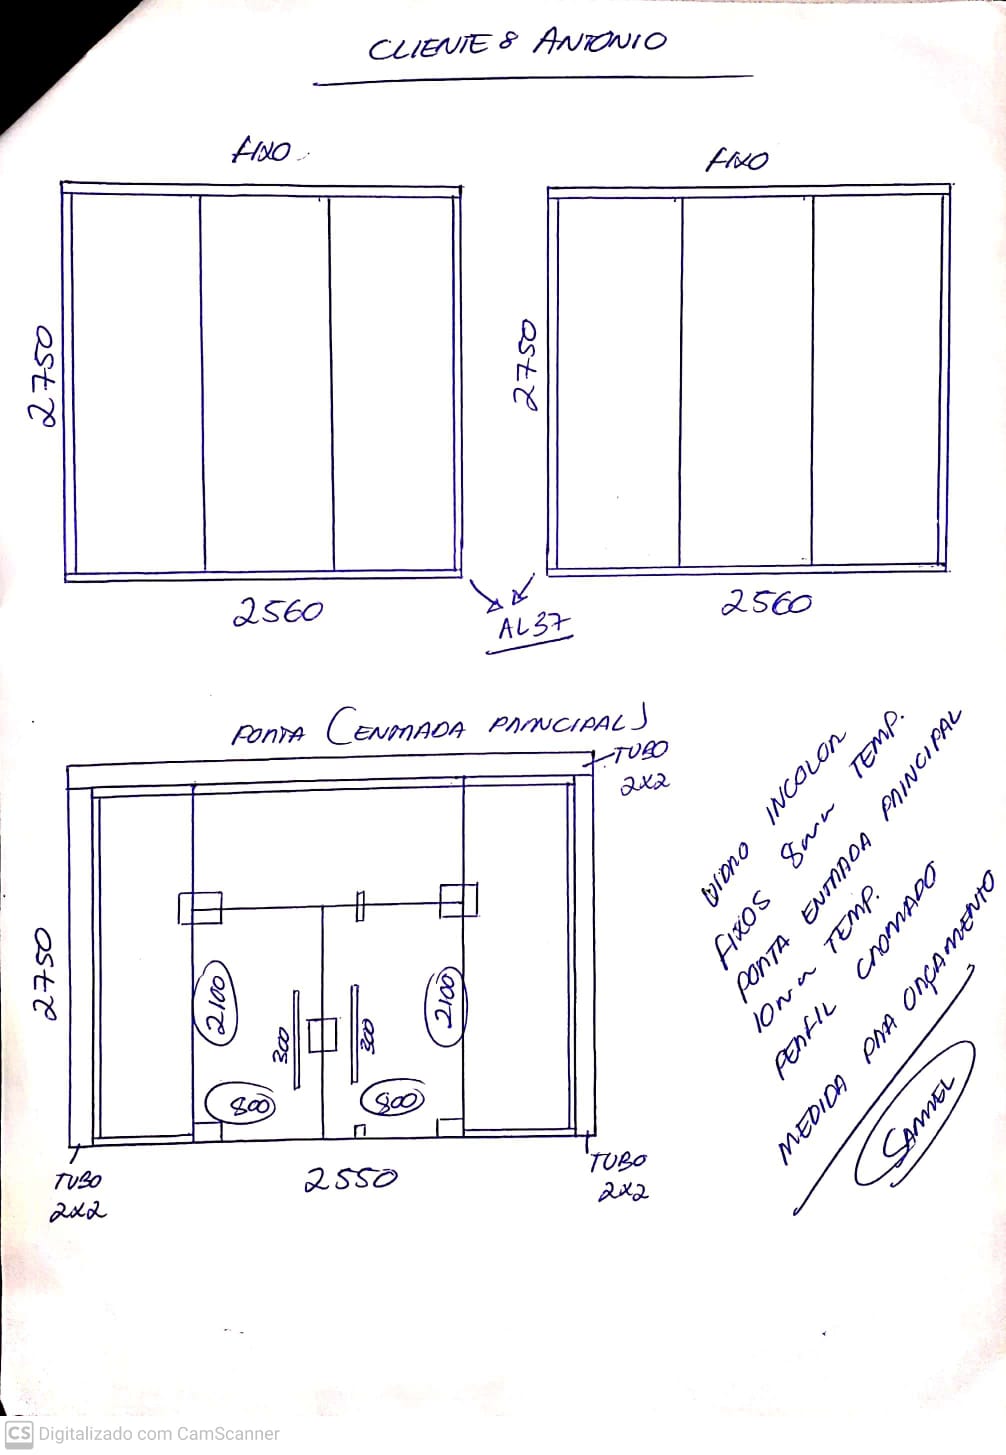 CLIENTE: ANTONIO
FIXO
FIXO
2750
2750
2560
2560
AL37
PORTA (ENTRADA PRINCIPAL)
TUBO
2x2
2750
2100
2100
300
300
800
800
2550
TUBO
2x2
TUBO
2x2
VIDRO INCOLOR
FIXOS 8mm TEMP.
PORTA ENTRADA PRINCIPAL
10mm TEMP.
PERFIL CROMADO
MEDIDA PRA ORÇAMENTO
CS Digitalizado com CamScanner